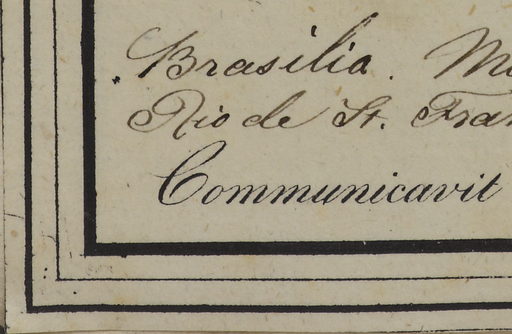 Brasilia. M
Rio de St. Fran
Communicavit